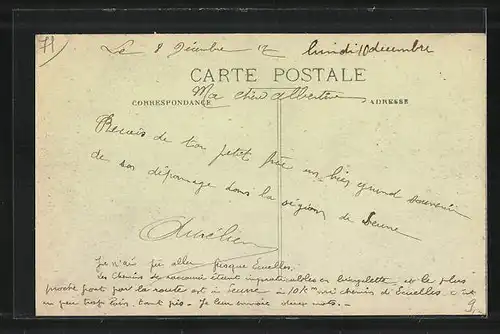 71
Le 8 Décembre 17 lundi 10 decembre
CARTE POSTALE
Ma chère Albertine
CORRESPONDANCE ADRESSE
Reçois de ton petit frère un bien grand souvenir
de son dépannage dans la région de Seurre
Aurélien
Je n'ai pu aller jusque Ecuelles.
les chemins de raccourci étant impraticables en bicyclette et le plus
proche pont par la route est à Seurre à 10 km du chemin d'Ecuelles c'est
un peu trop loin, tant pis. Je leur envoie deux mots.